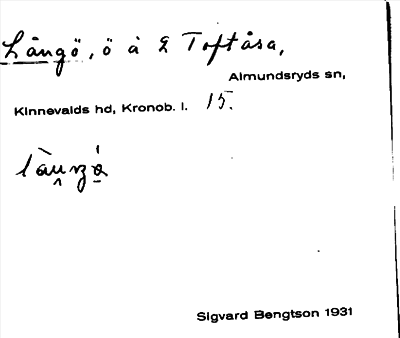 Långö, ö à 2 Toftåsa,
Almundsryds sn,
Kinnevalds hd, Kronob. l. 15.
Sigvard Bengtson 1931